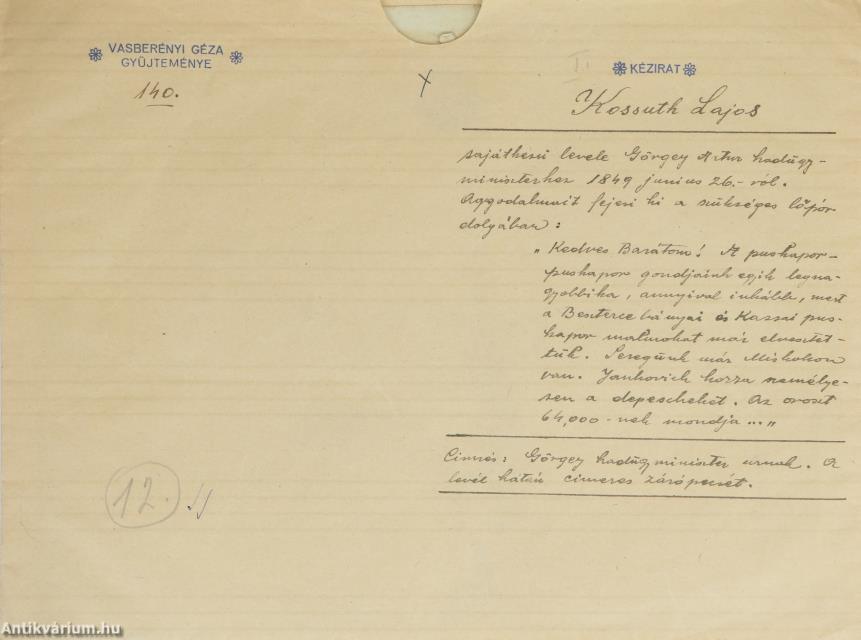 VASBERÉNYI GÉZA
GYŰJTEMÉNYE
140.
KÉZIRAT
Kossuth Lajos
sajátkezü levele Görgey Artur hadügy-
miniszterhez 1849 junius 26.-ról.
Aggodalmait fejezi ki a szükséges lőpor
dolgában:
„Kedves Barátom! A puskapor-
puskapor gondjaink egyik legna-
gyobbika, annyival inkább, mert
a Beszterce bányai és Kassai pus-
kapor malmokat már elvesztet-
tük. Seregünk már Miskolcon
van. Jankovich hozza személye-
sen a depescheket. Az oroszt
64,000-nek mondja ..."
Cimzés: Görgey hadügyminiszter urnak. A
levél hátán cimeres zárópecsét.
12.
Antikvárium.hu